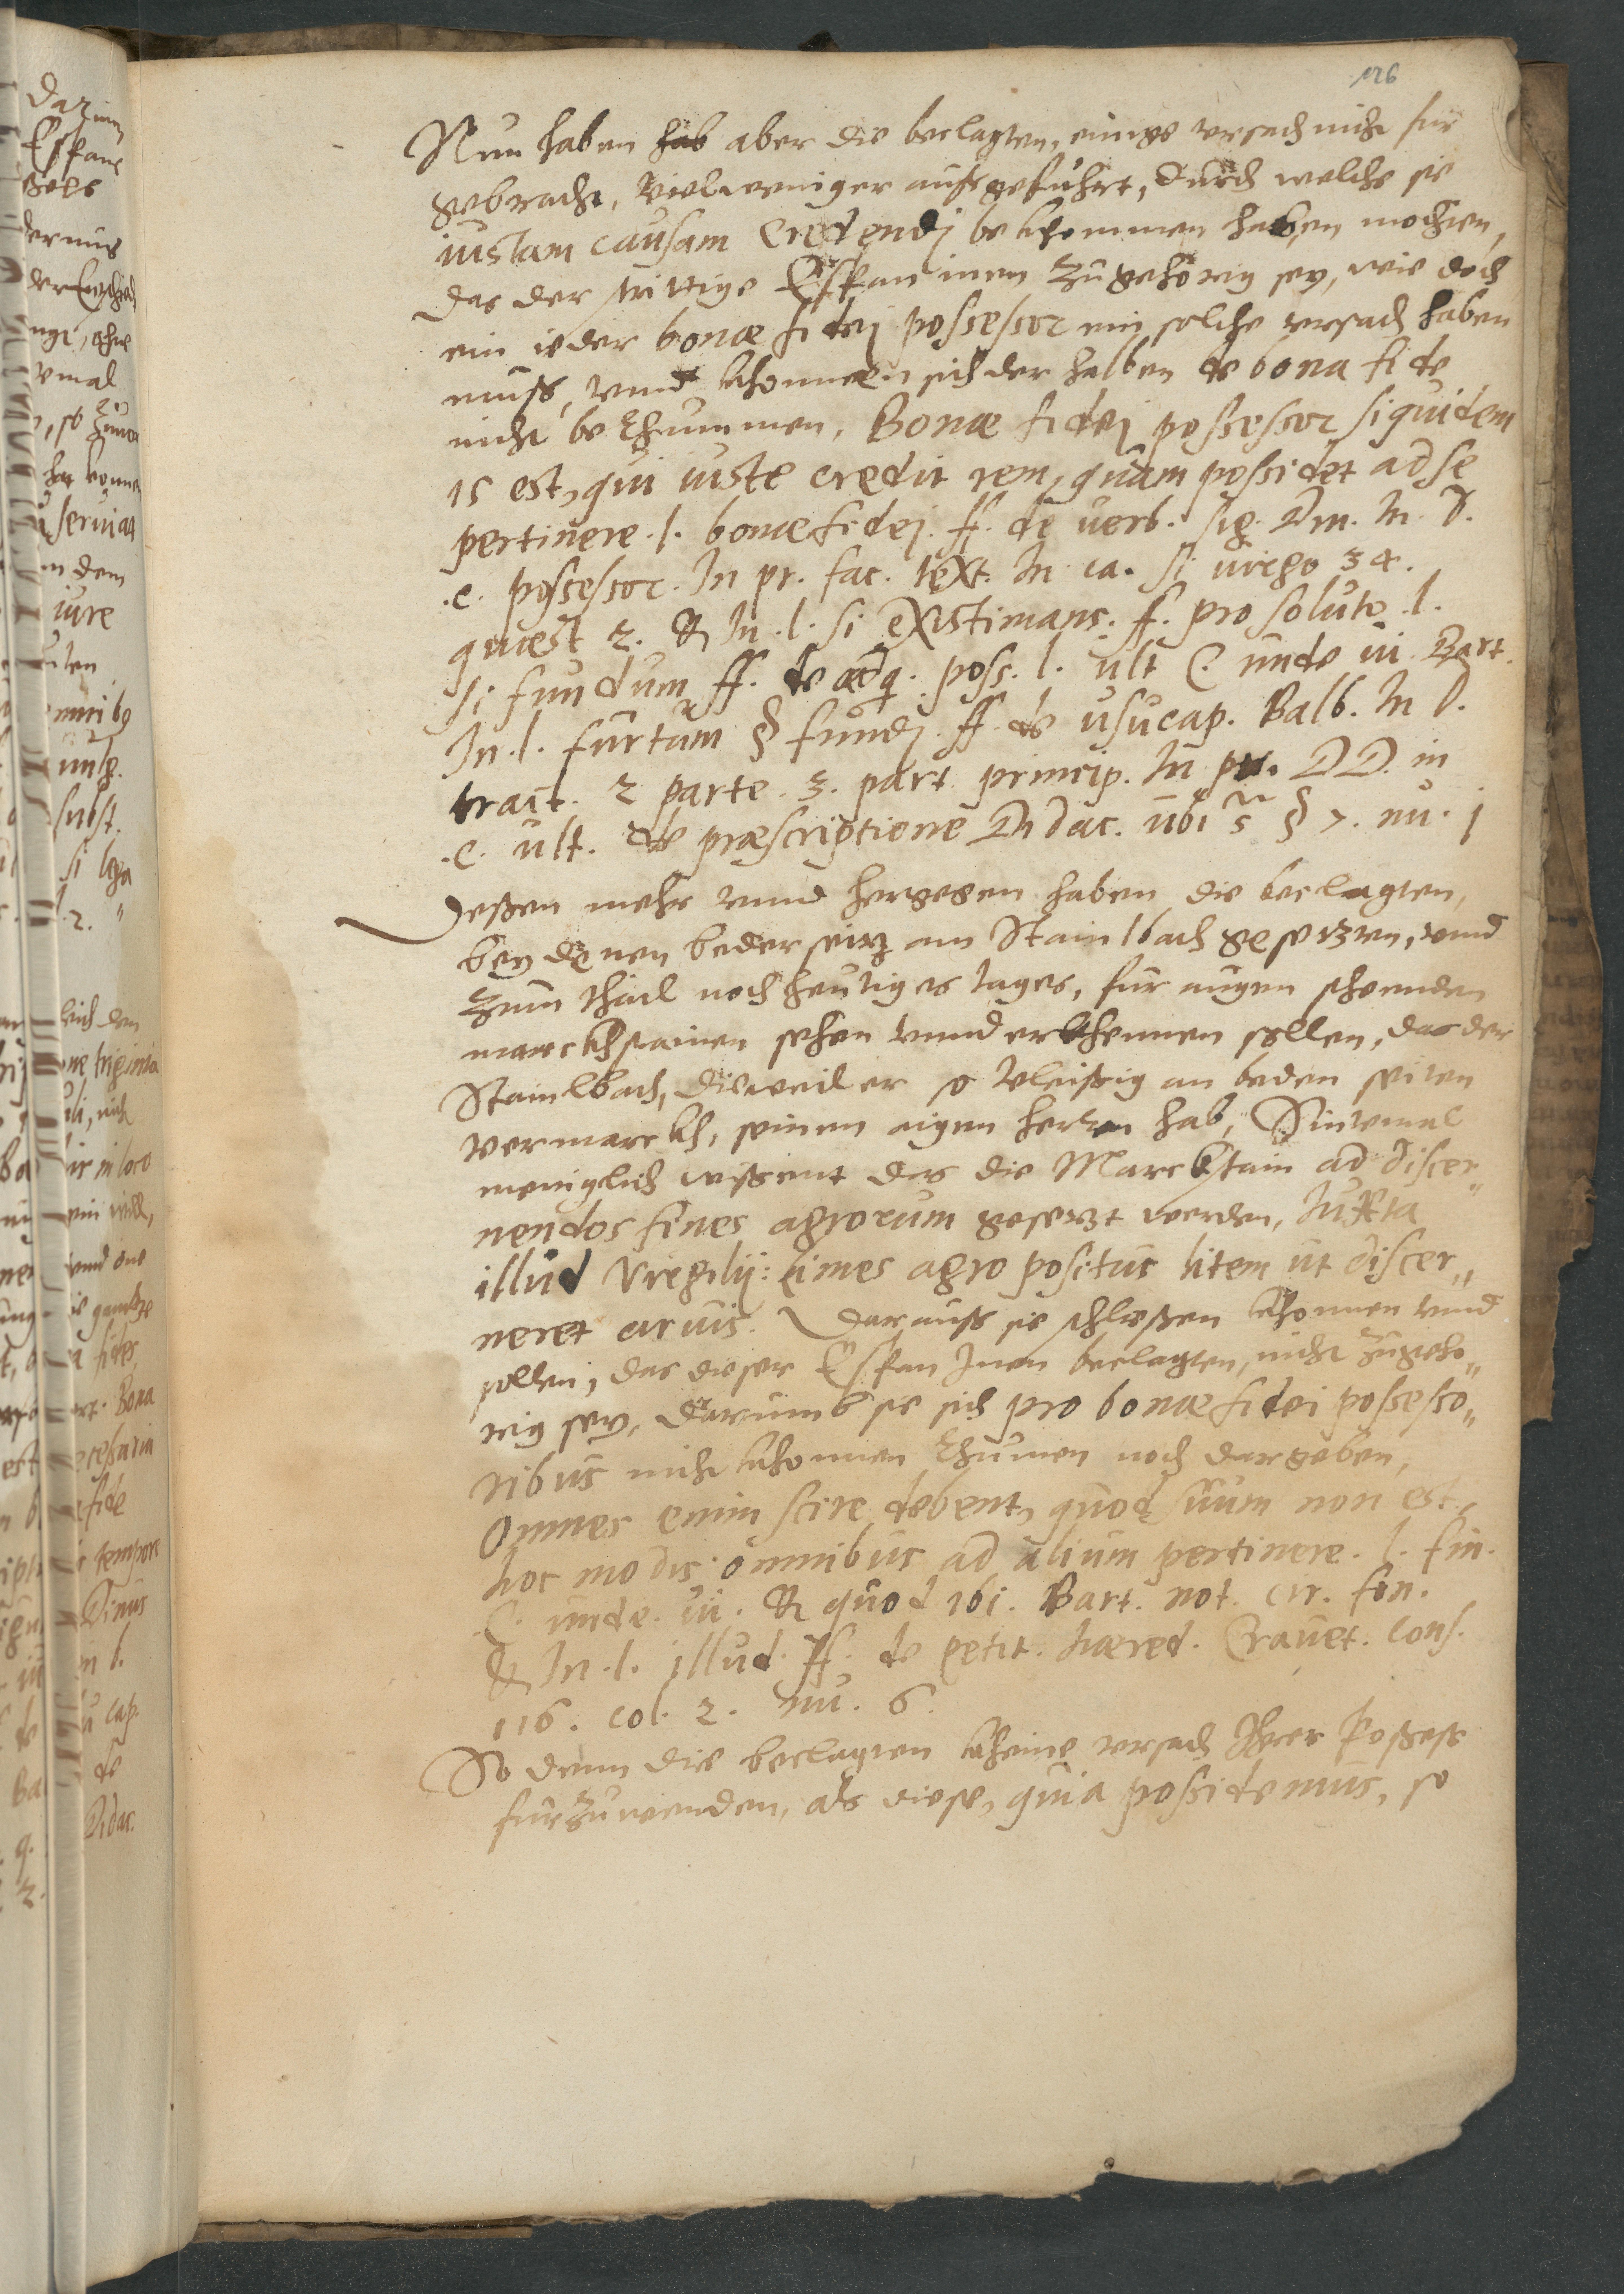 126
Nun haben hab aber die beclagten, einige vrsach nicht fur
gebracht, vielweniger aussgefuhrt, durch welche sie
iustam causam credendj bekhommen haben mochten,
das der strittige Espan inen zugehörig sey, wie doch
ein ieder bonæ fidej possessor ein solche vrsach haben
muss, vnnd khonneen sich derhalben de bona fide
nicht berhuemmen, Bonæ fidej possessor siquidem
is est, qui iuste credit rem, quam possidet ad se
pertinere .l. bonæ fidej. ff. de verb. sig. Din. In. d.
.c. possessor. In pr. fac. text. In ca. si virgo 34.
quæst 2. & In .l. si existimans. ff. pro soluto .l.
si fundum ff. de adq. poss. l. ult C. unde vi. Bart.
In .l. furtum § fundj. ff. de usucap. Balb. In d.
tract. 2 parte .3. part princip. In pr. DD. in
.c. ult. de præscriptione Didac. ubi s § 7. nu. j
Dessen mehr vnnd hergegen haben die beclagten,
bey denen bederseitz am Stainlbach gesetzten, vnnd
zum thail noch heutiges tages, fur augen sthenden
marckhstainen sehen vnnd erkhennen sollen, das der
Stainlbach, dieweil er so vleissig an beden seiten
vermarckh, seinen aigen herren hab, Sintemal
meniglich wissent das die Marckstain ad discer„
nendos fines agrorum gesetzt werden, Iuxta
illud Virgilij: Limes agro positus litem ut discer„
neret arvis. Darauss sie schliessen khonnen vnnd
sollen, das dieser Espan Inen beclagten, nicht zugeho„
rig sey, Darumb sie sich pro bonæ fidei possesso„
ribus nicht khonnen rhumen noch dargeben,
Omnes enim scire debent, quod suum non est,
hoc modis omnibus ad alium pertinere. l. fin.
C. unde. vi. & quod ibi. Bart. not. cir. fin.
& In .l. illud. ff. de petit. hæred. Cravet. cons.
116. col. 2. nu. 6.
So dann die beclagten kheine vrsach Ihrer Possess
furzuwenden, als diese, quia possidemus, so